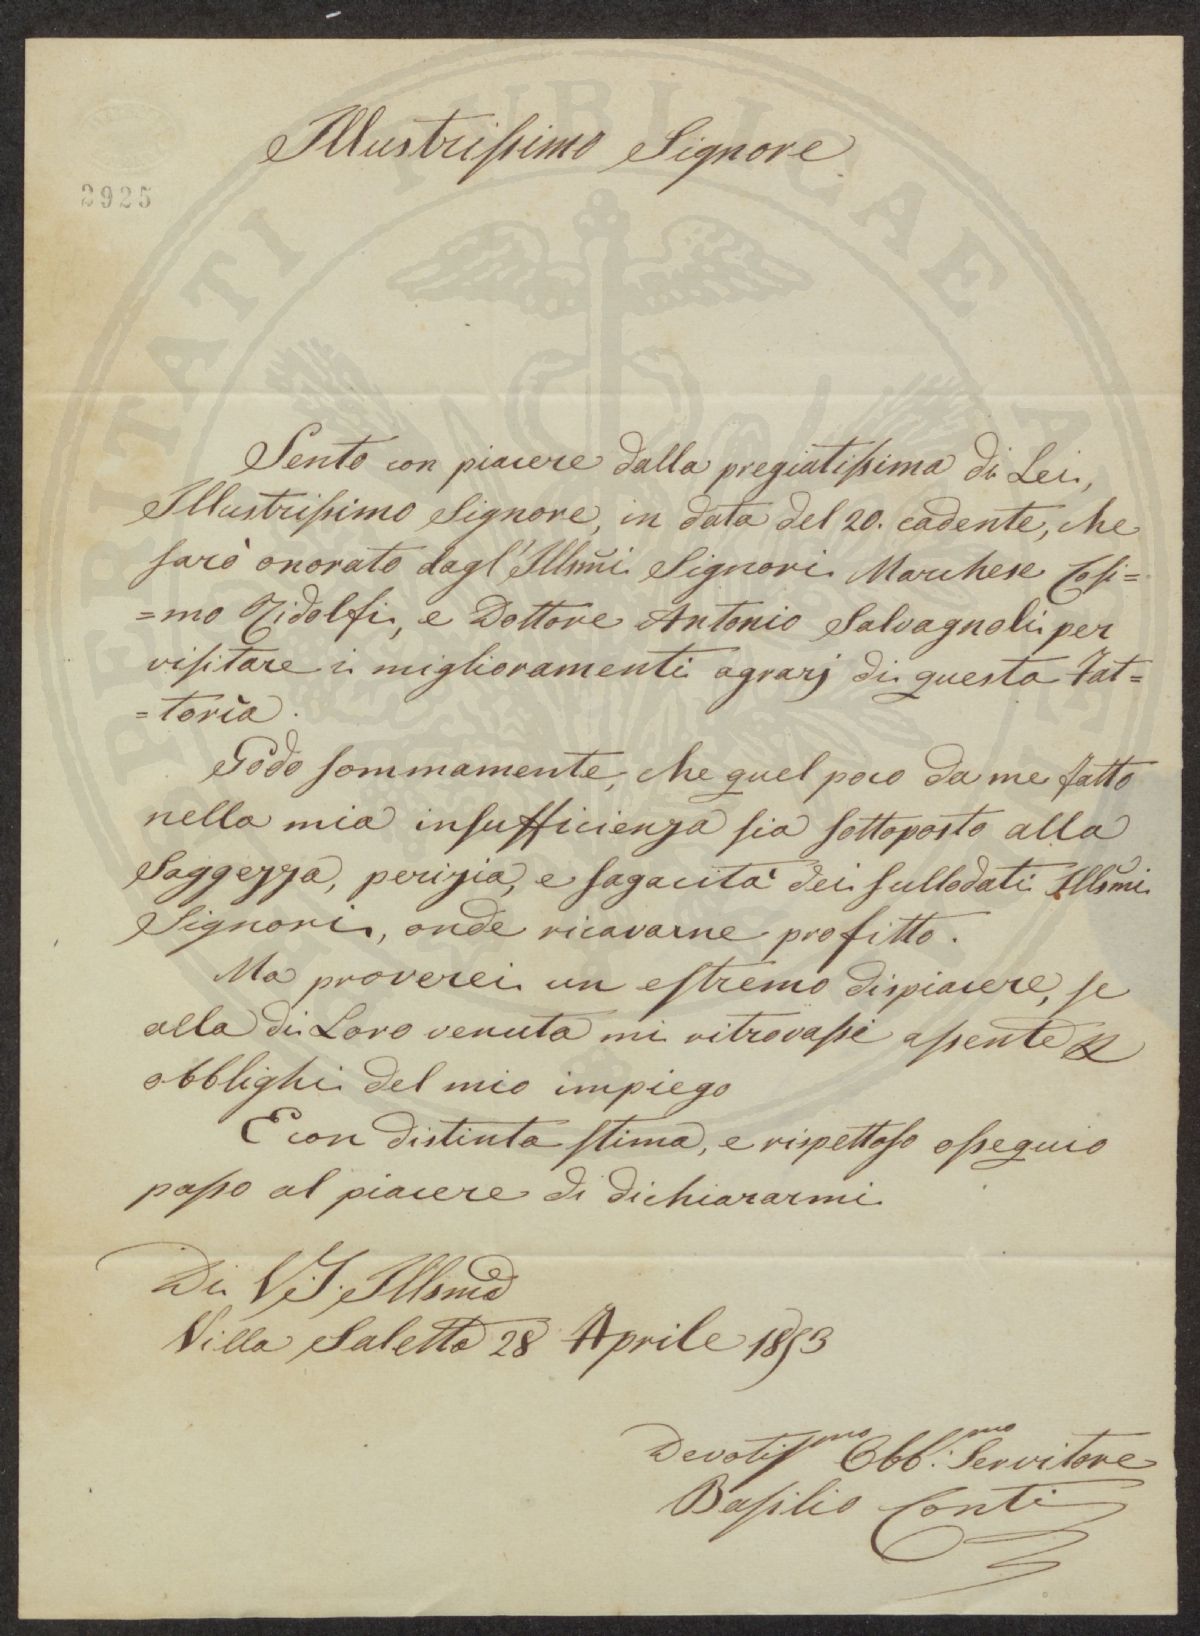 Illustrissimo Signore
2925
Sento con piacere dalla pregiatissima di Lei,
Illustrissimo Signore, in data del 20. cadente, che
sarò onorato dagl'Illsmi Signori Marchese Cosi=
=mo Ridolfi, e Dottore Antonio Salvagnoli per
visitare i miglioramenti agrarj di questa Fat=
=toria.
Godo sommamente, che quel poco da me fatto
nella mia insufficienza sia sottoposto alla
Saggezza, perizia, e sagacità dei sullodati Illsmi
Signori, onde ricavarne profitto.
Ma proverei un estremo dispiacere, se
alla di Loro venuta mi ritrovassi assente
obblighi del mio impiego
E con distinta stima, e rispettoso ossequio
passo al piacere di dichiararmi
Di V. S. Illsma
Villa Saletta 28 Aprile 1853
Devotissmo Obb.mo Servitore
Basilio Conti